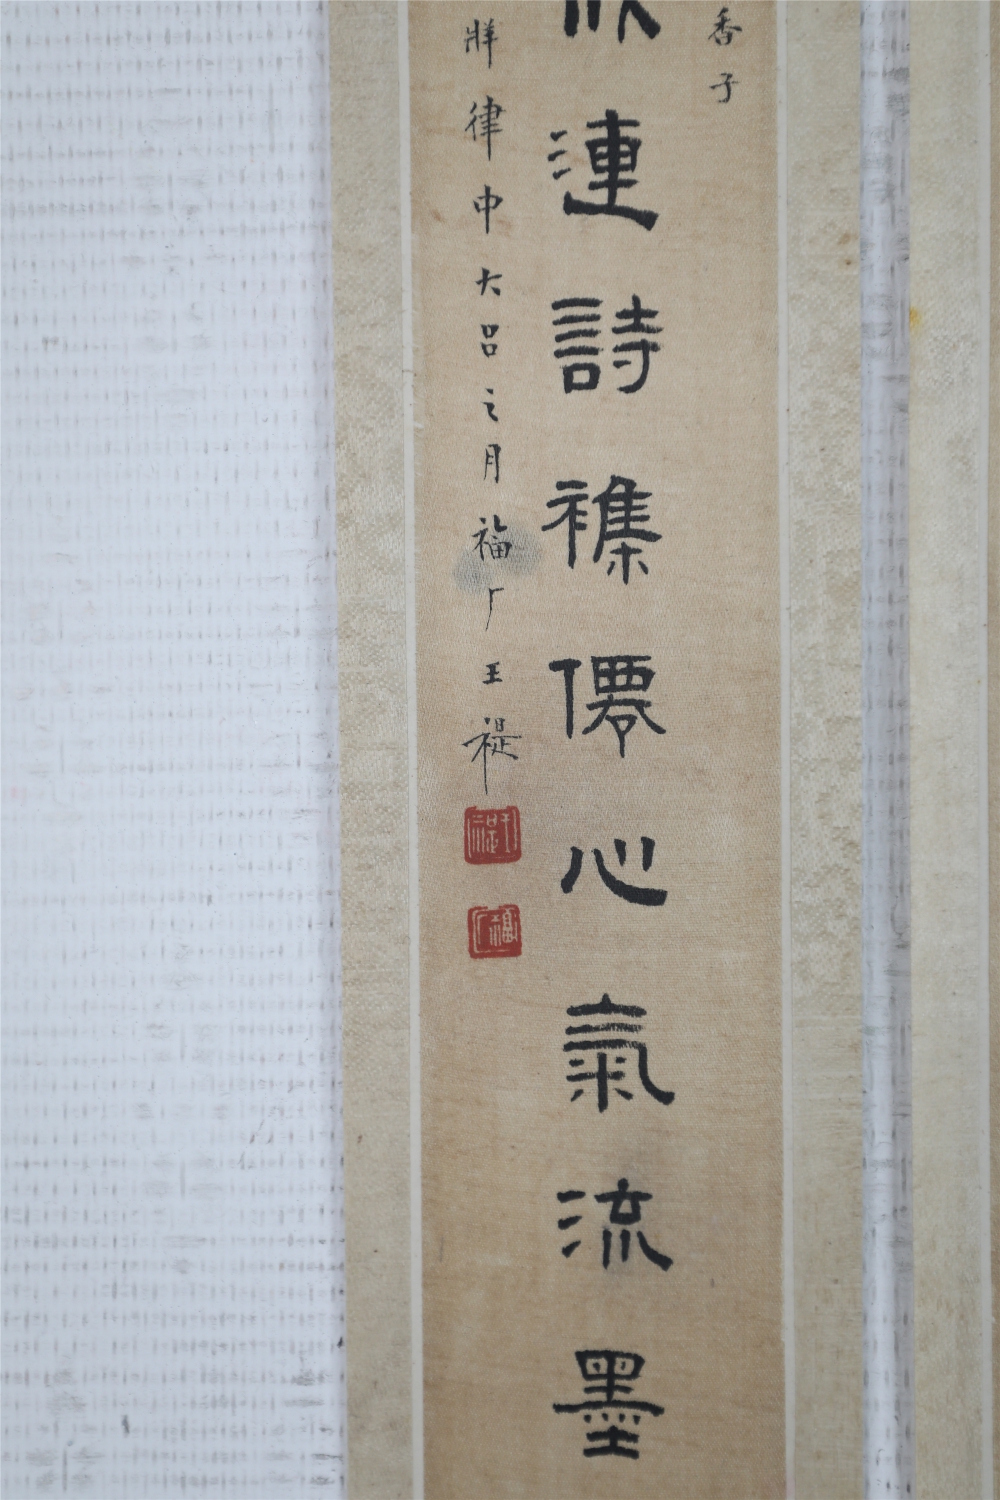 香子
連詩襍僊心氣流墨
牂律中大呂之月福厂王禔
王禔
福厂